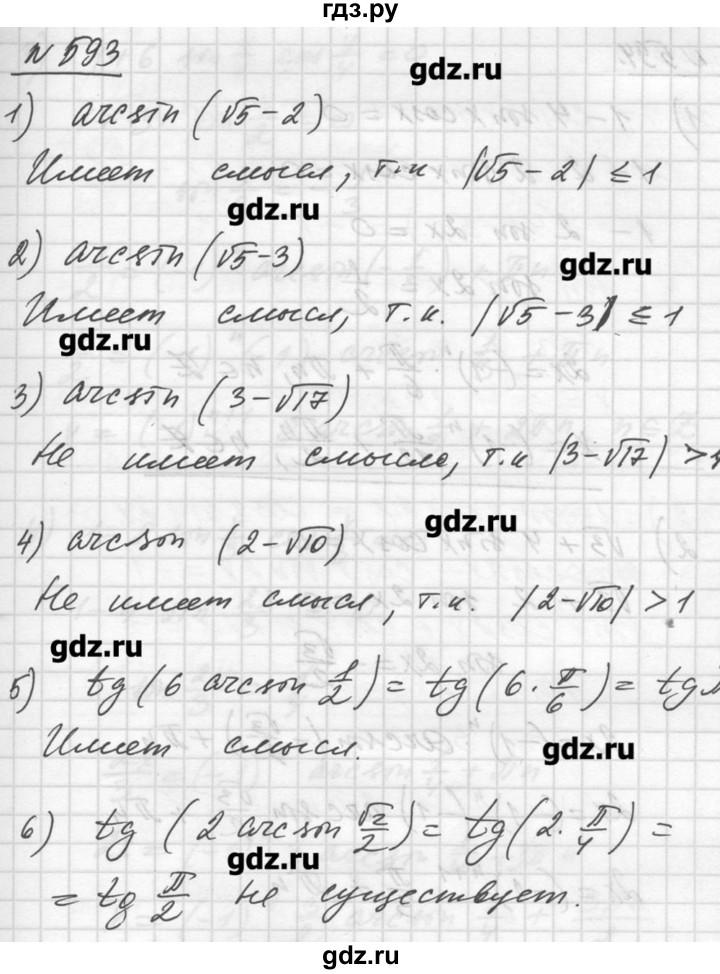 гдз.ру
№ 593
gdz.ru
1) arcsin (√5-2)
Имеет смысл, т.к |√5-2| ≤ 1
gdz.ru
2) arcsin (√5-3)
gdz.ru
Имеет смысл, т.к. |√5-3| ≤ 1
gdz.ru
3) arcsin (3-√17)
Не имеет смысла, т.к |3-√17| > 1
gdz.ru
4) arcsin (2-√10)
Не имеет смысл, т.к. |2-√10| > 1
gdz.ru
5) tg (6 arcsin 1/2) = tg (6 · π/6) = tg π
Имеет смысл.
gdz.ru
6) tg (2 arcsin √2/2) = tg (2 · π/4) =
gdz.ru
= tg π/2 не существует.
gdz.ru